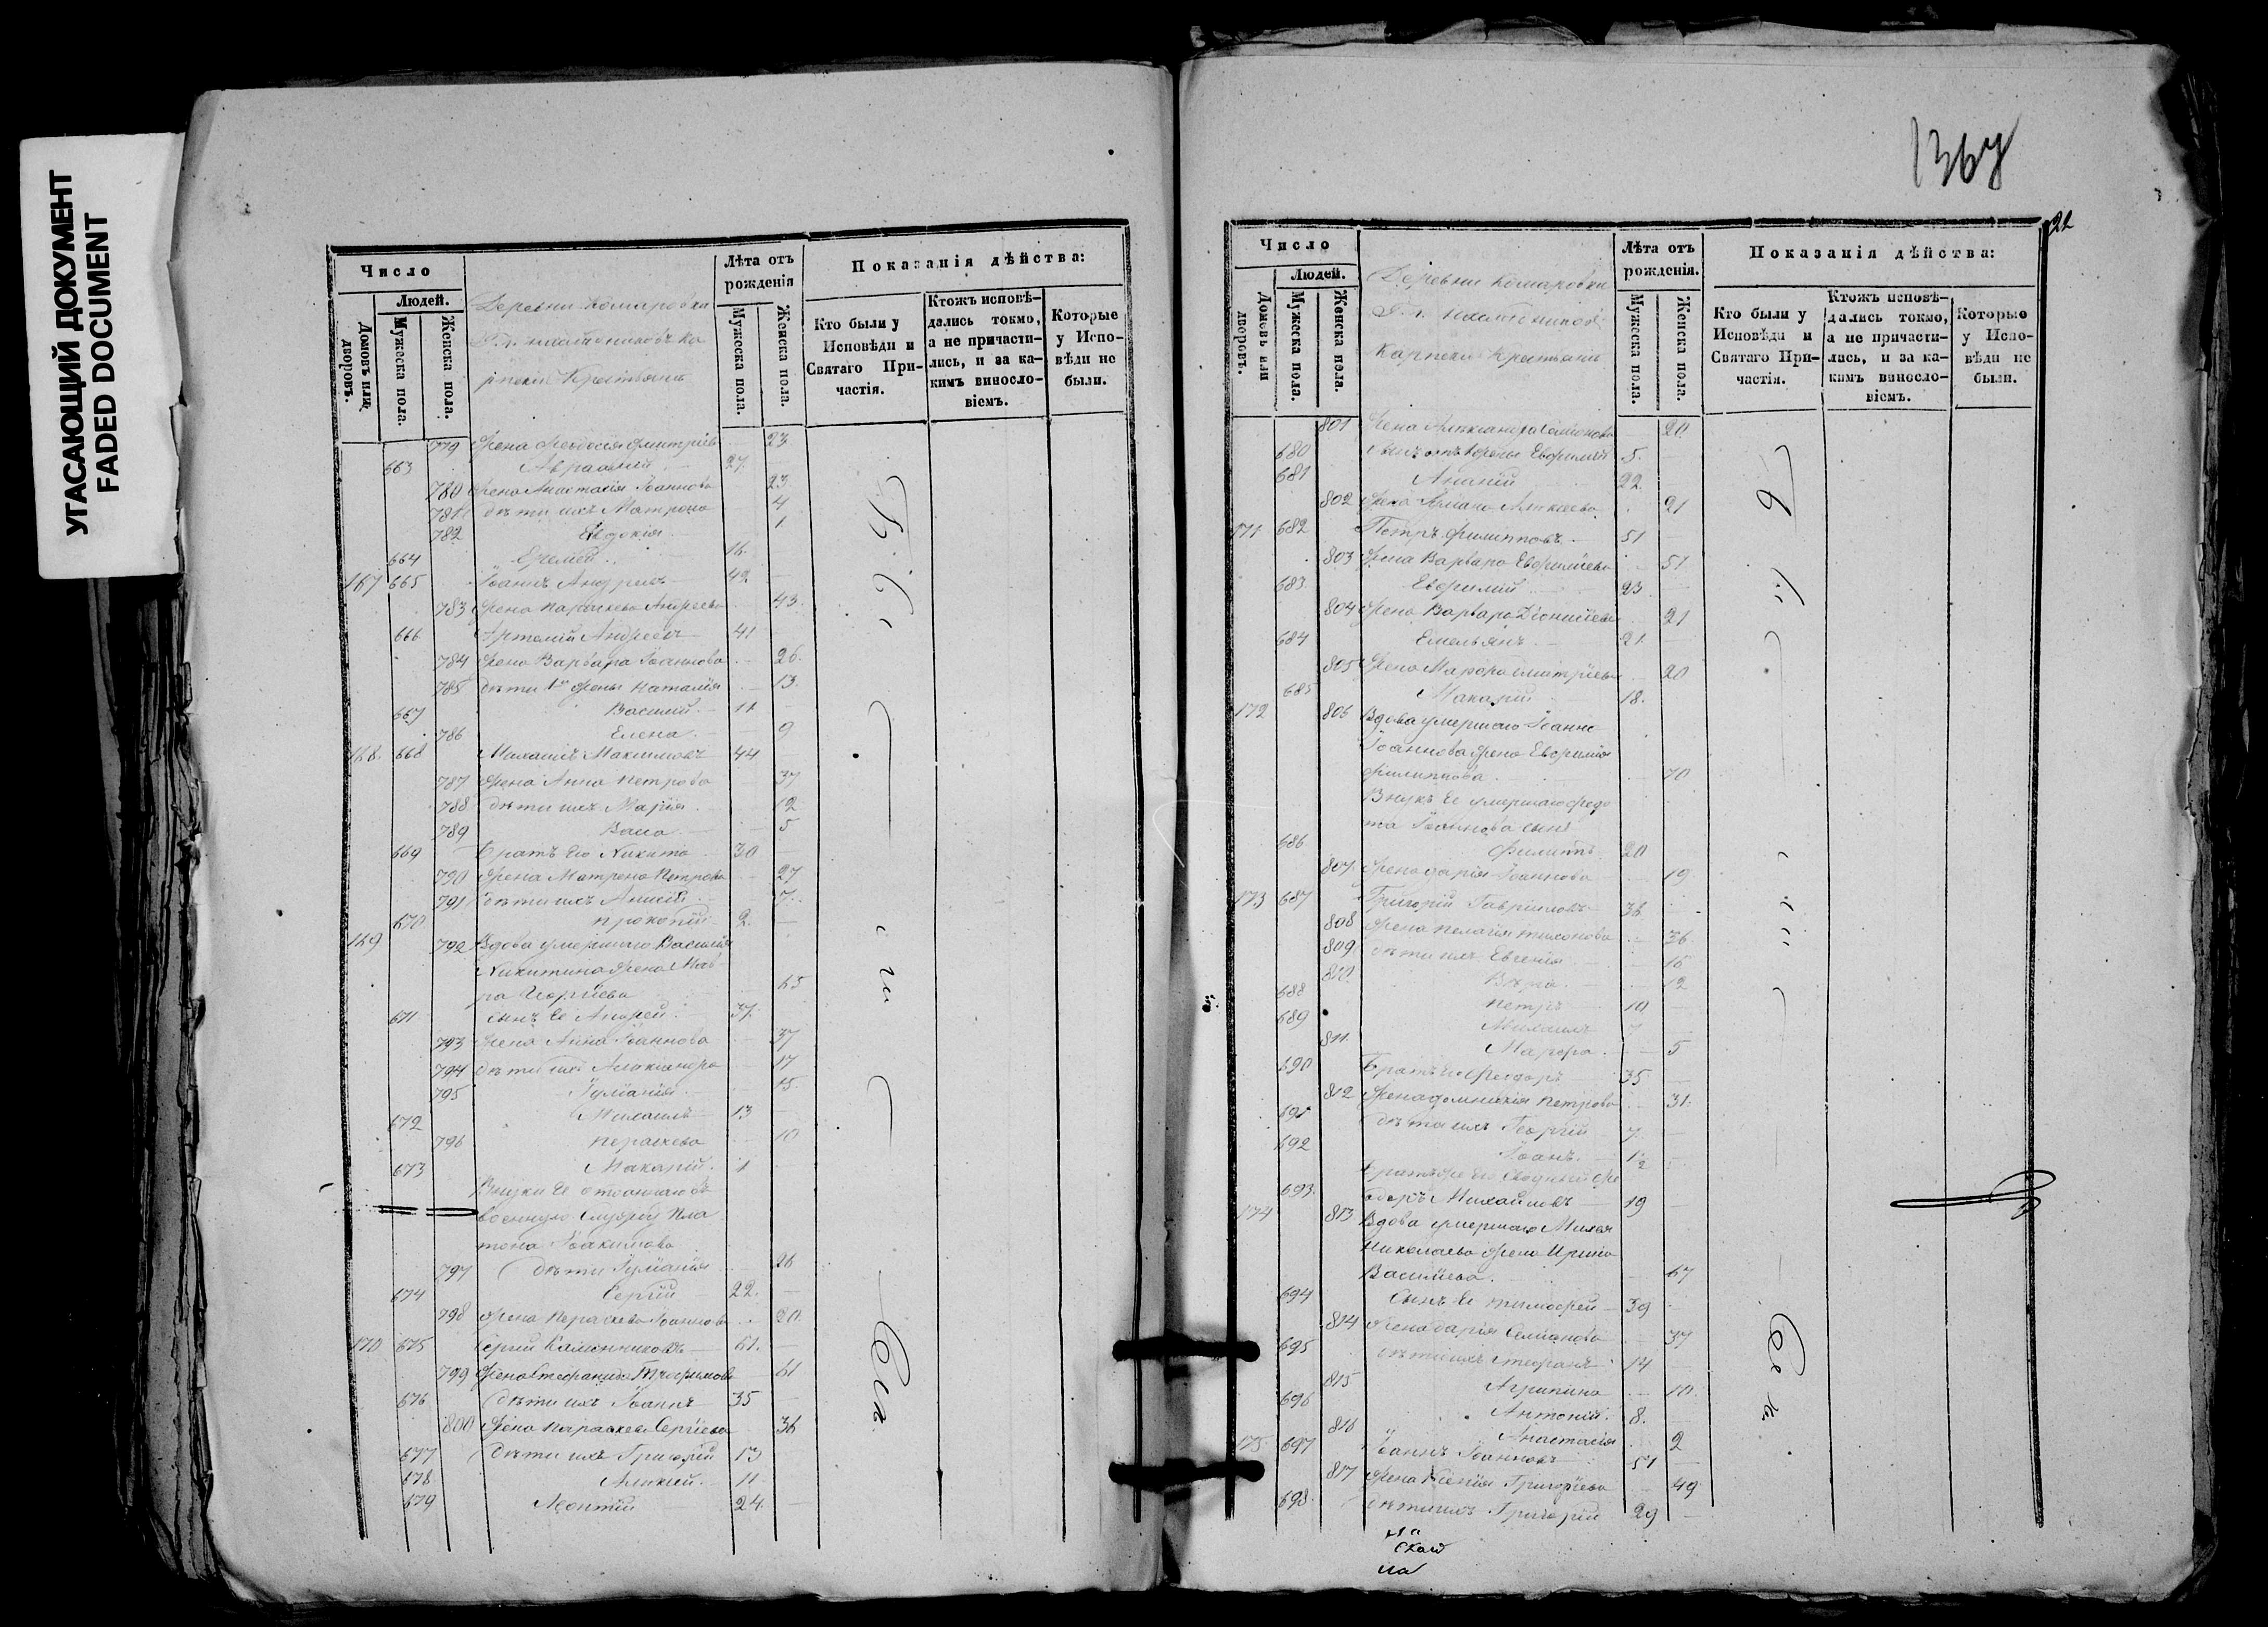 УГАСАЮЩИЙ ДОКУМЕНТ
FADED DOCUMENT
Число
Людей.
Домовъ или дворовъ.
Мужеска пола.
Женска пола.
Деревни Комаровки
Крестьянъ
Лѣта отъ рожденія
Мужеска пола.
Женска пола.
Показанія дѣйства:
Кто были у Исповѣди и Святаго Причастія.
Ктожъ исповѣдались токмо, а не причастились, и за какимъ винословіемъ.
Которые у Исповѣди не были.
779 Жена Феодосія Дмитріев 23
663 Авраамій 27
780 Жена Анастасія Іоаннова 23
781 дѣти ихъ Матрона 4
782 Евдокія 1
664 Еремей 16
167 665 Іоаннъ Андреевъ 42
783 Жена Параскева Андреева 43
666 Артемій Андреевъ 41
784 Жена Варвара Іоаннова 26
785 дѣти 1й жены Наталія 13
667 Василій 11
786 Елена 9
168 668 Михаилъ Максимовъ 44
787 Жена Анна Петрова 37
788 дѣти ихъ Марія 12
789 Васса 5
669 Братъ Его Никита 30
790 Жена Матрона Петрова 27
791 дѣти ихъ 7
670 Прокопій 2
169 792 Вдова умершаго Василія
Никитина Жена Мав
ра Георгіева 65
671 сынъ Ее Андрей 37
793 Жена Анна Іоаннова 37
794 дѣти ихъ Александра 17
795 Іуліанія 15
672 Михаилъ 13
796 Параскева 10
673 Макарій 1
Внуки Ее отданнаго въ
военную службу Пла
тона Іоакимова
797 дѣти Іуліанія 26
674 Сергій 22
798 Жена Параскева Іоаннова 20
170 675 Сергій Калинниковъ 61
799 Жена Стефанида Трофимова 61
676 дѣти ихъ Іоаннъ 35
800 Жена Параскева Сергіева 36
677 дѣти ихъ Григорій 13
678 Алексей 11
679 Леонтій 24
1367
22
Число
Людей.
Домовъ или дворовъ.
Мужеска пола.
Женска пола.
Деревни Комаровки
Крестьянъ
Лѣта отъ рожденія.
Мужеска пола.
Женска пола.
Показанія дѣйства:
Кто были у Исповѣди и Святаго Причастія.
Ктожъ исповѣдались токмо, а не причастились, и за какимъ винословіемъ.
Которые у Исповѣди не были.
801 Жена Александра Семионова 20
680 сынъ отъ 1 жены Евфимій 5
681 Ананій 22
802 Жена Алексеева 21
171 682 Петръ Филипповъ 51
803 Жена Варвара Евфиміева 51
683 Евфимій 23
804 Жена Варвара Діонисіева 21
684 Емельянъ 21
805 Жена Марфа Дмитріева 20
685 Макарій 18
172 806 Вдова умершаго Іоанна
Іоаннова Жена Евфимія
Филиппова 70
Внукъ Ее умершаго Федо
та Іоаннова сынъ
686 Филиппъ 20
807 Жена Дарія Іоаннова 19
173 687 Григорій Гавріиловъ 36
808 Жена Пелагія Тихонова 36
809 дѣти ихъ Евгенія 16
810 Вѣра 12
688 Петръ 10
689 Михаилъ 7
811 Марфа 5
690 Братъ Его Феодоръ 35
812 Жена Домникія Петрова 31
691 дѣти ихъ Георгій 7
692 Іоанъ 1/2
Братъ же Его сводный Фе
693 одоръ Михайловъ 19
174 813 Вдова умершаго Михея
Николаева Жена Ирина
Васильева 67
694 Сынъ Ее Тимофей 39
814 Жена Дарія Семионова 37
695 дѣти ихъ Стефанъ 14
815 Агрипина 10
696 Антоній 8
816 Анастасія 2
175 697 Іоаннъ Іоанновъ 51
817 Жена Ксенія Григоріева 49
698 дѣти ихъ Григорій 29